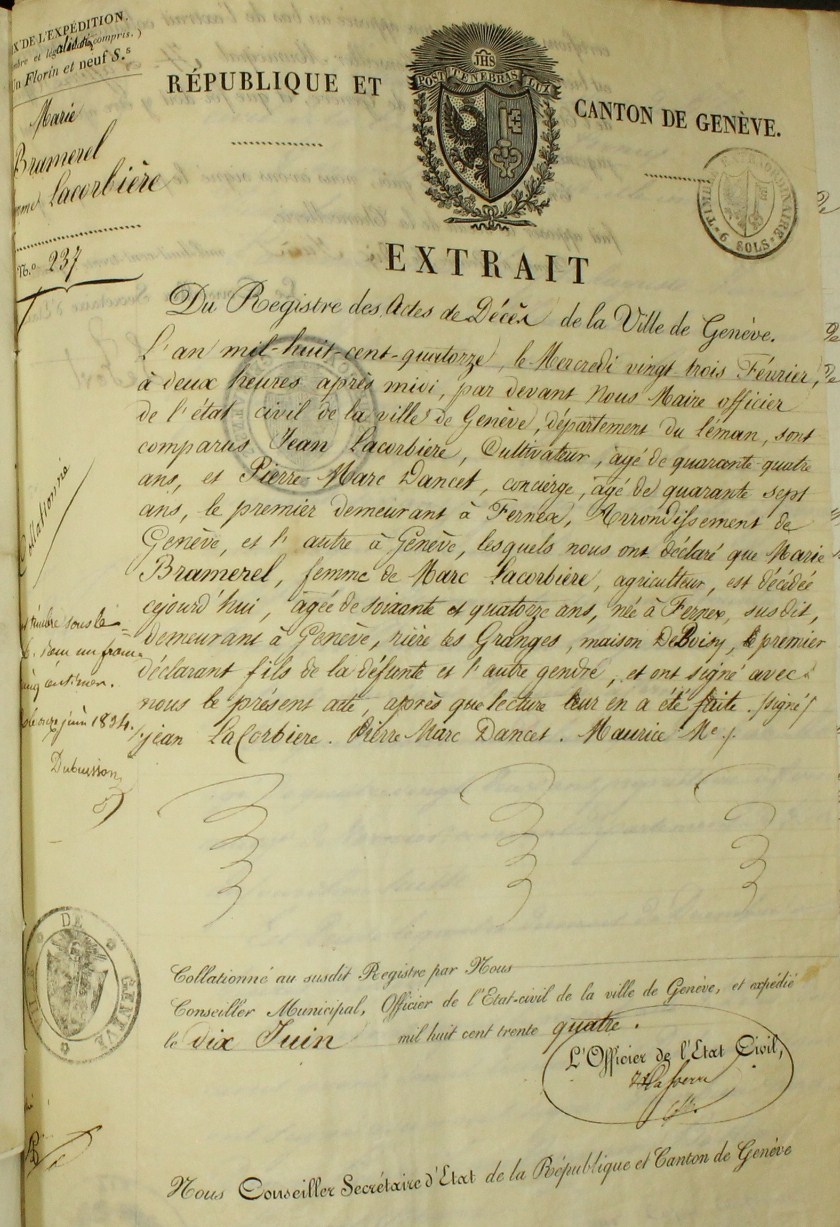 X DE L'EXPÉDITION.
compris.)
Un Florin et neuf S.s
Marie
Brumerel
femme Lacorbière
N.o 237
RÉPUBLIQUE ET
JHS
POST TENEBRAS LUX
CANTON DE GENÈVE.
TIMBRE EXTRAORDINAIRE
9 SOLS
EXTRAIT
Du Registre des Actes de Décès de la Ville de Genève.
L'an mil-huit-cent-quatorze, le Mercredi vingt-trois Février,
à deux heures après midi, par devant Nous Maire officier
de l'état-civil de la ville de Genève, département du Léman, sont
comparus Jean Lacorbière, Cultivateur, âgé de quarante-quatre
ans, et Pierre Marc Dancet, concierge, âgé de quarante sept
ans, le premier demeurant à Fernex, Arrondissement de
Genève, et l'autre à Genève, lesquels nous ont déclaré que Marie
Bramerel, femme de Marc Lacorbière, agriculteur, est décédée
cejourd'hui, âgée de soixante et quatorze ans, née à Fernex, susdit,
demeurant à Genève, rière les Granges, maison DeBoisy, le premier
déclarant fils de la défunte et l'autre gendre, et ont signé avec
nous le présent acte, après que lecture leur en a été faite. /signé/
jean LaCorbiere. Pierre Marc Dancet. Maurice Me/.
Collationné
timbre sous le
un franc
cinq centimes.
onze juin 1834.
Dubuisson
VILLE DE GENÈVE
Collationné au susdit Registre par Nous
Conseiller Municipal, Officier de l'Etat-civil de la ville de Genève, et expédié
le dix Juin mil huit cent trente quatre.
L'Officier de l'Etat Civil,
Nous Conseiller Secrétaire d'Etat de la République et Canton de Genève